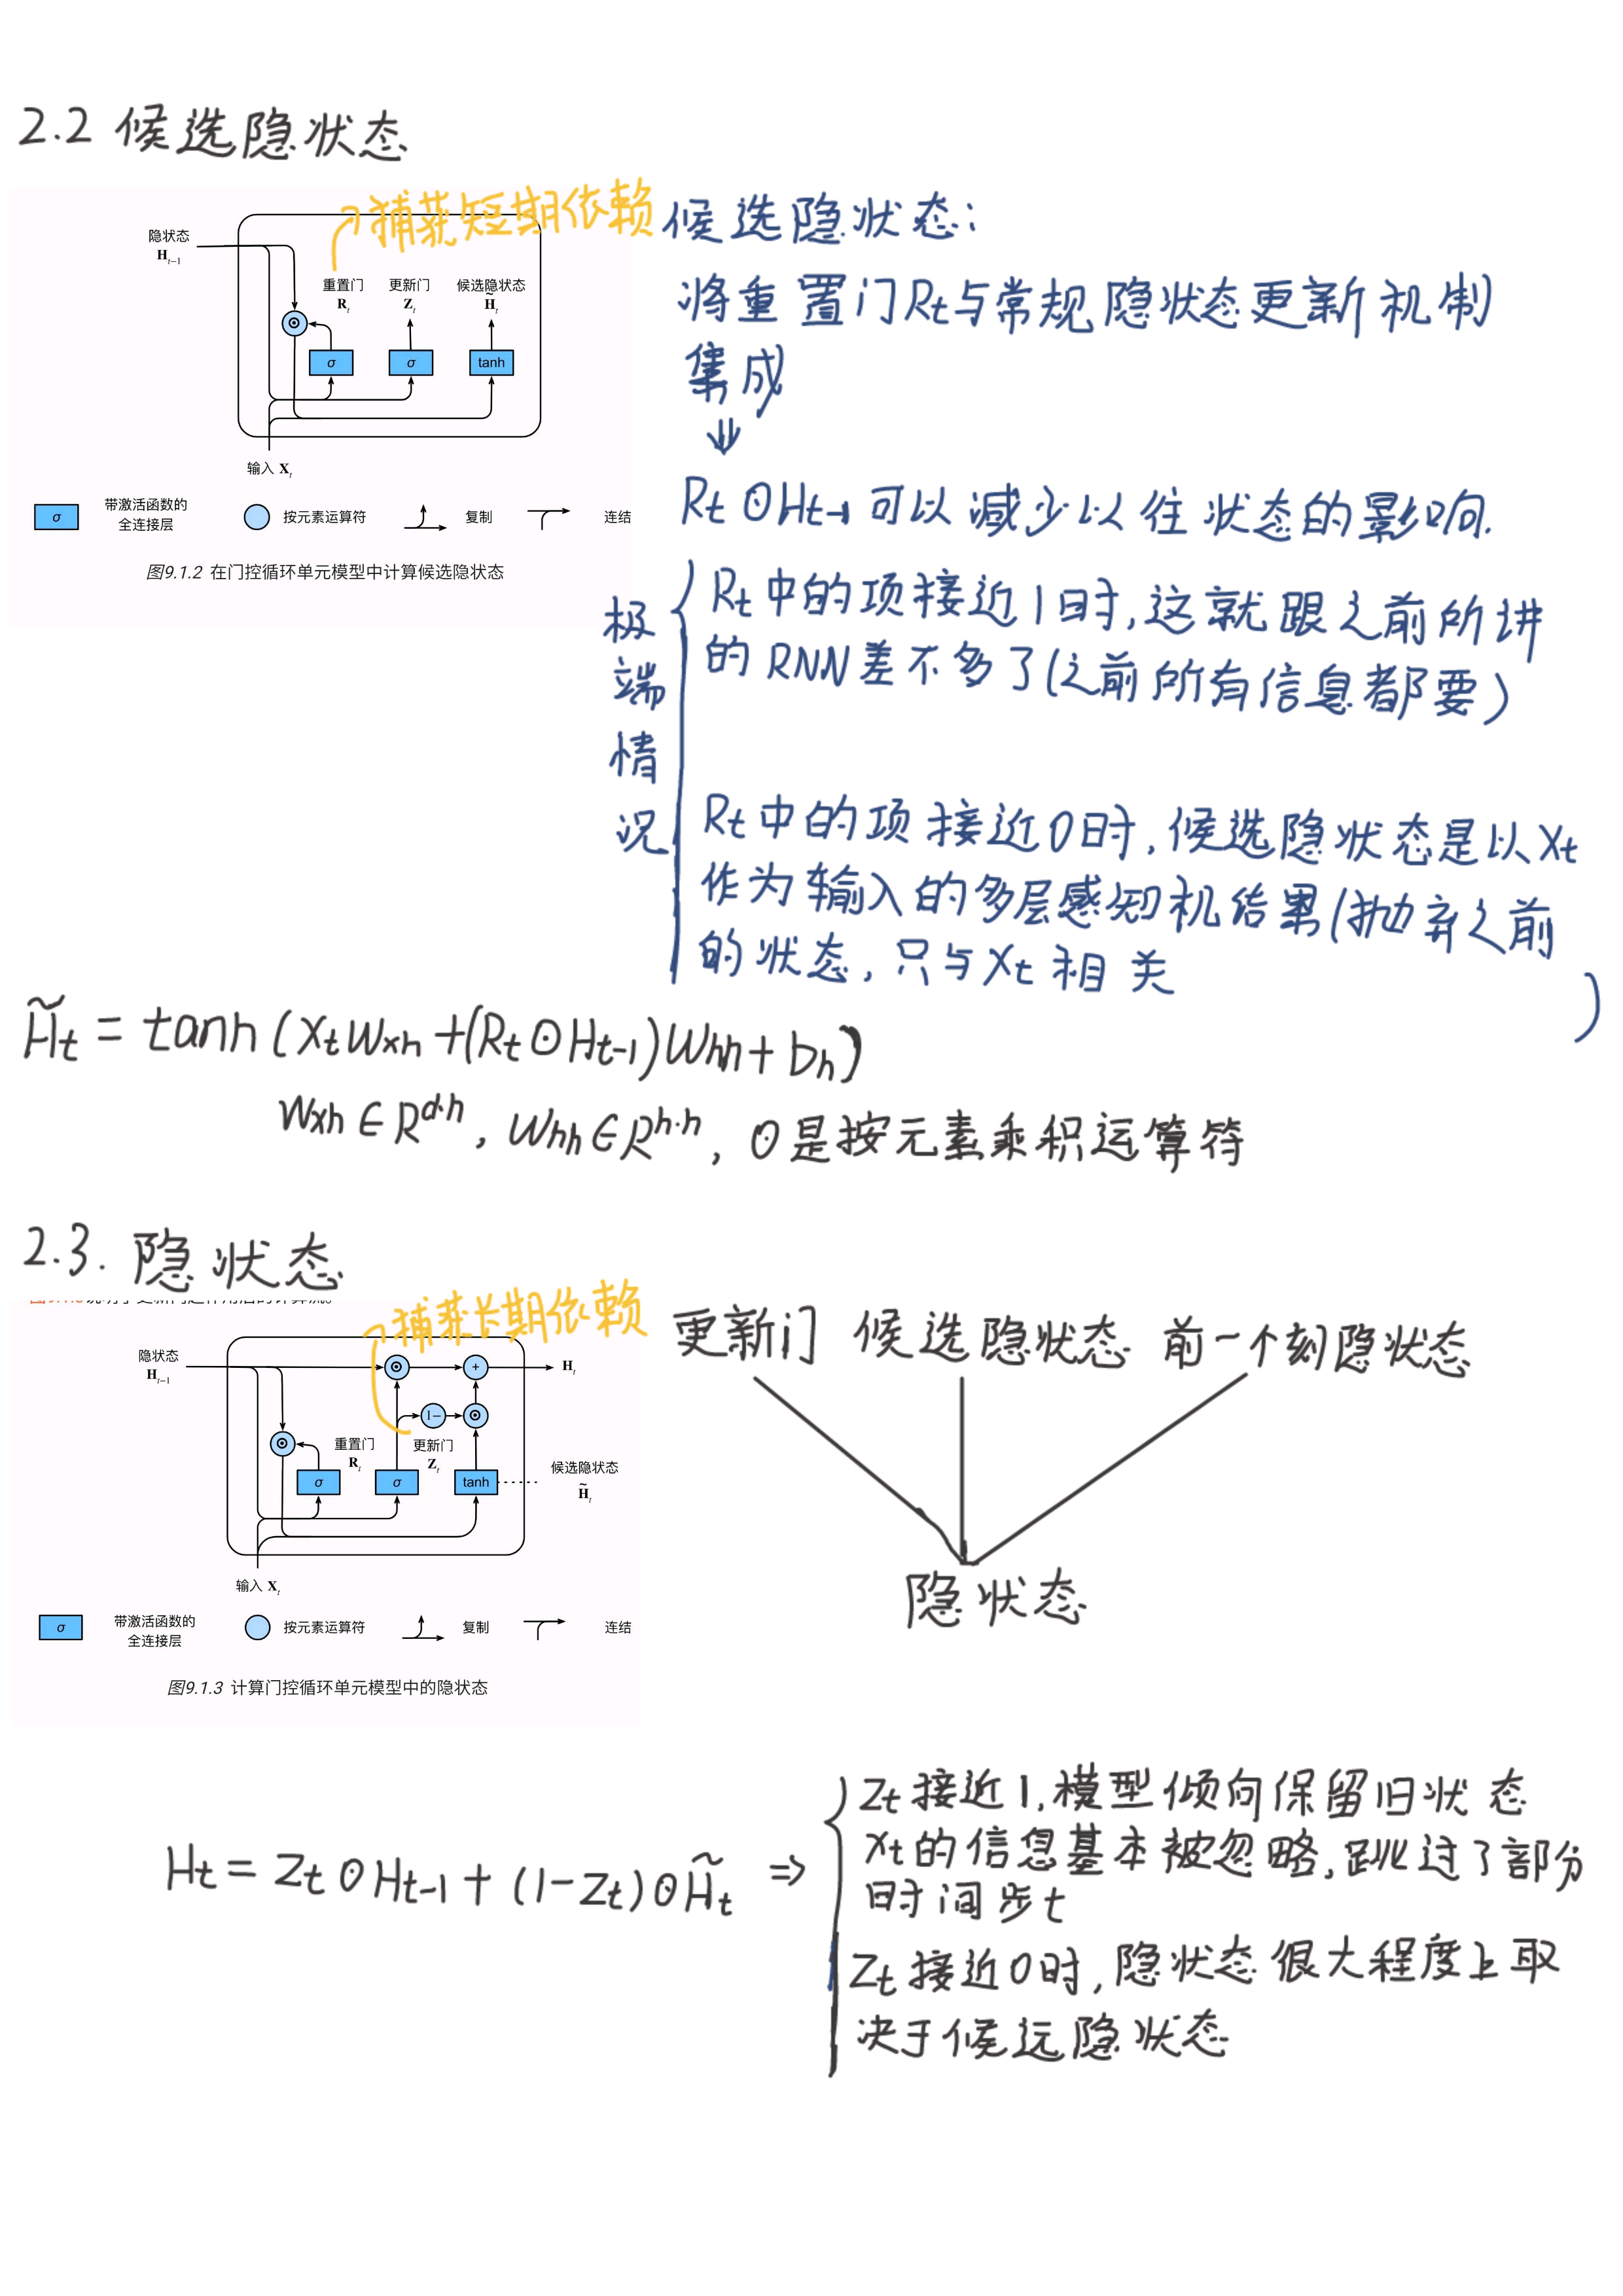 2.2 候选隐状态
捕获短期依赖
隐状态
H_{t-1}
重置门 更新门 候选隐状态
R_t Z_t H̃_t
σ σ tanh
输入 X_t
σ 带激活函数的 按元素运算符 复制 连结
全连接层
图9.1.2 在门控循环单元模型中计算候选隐状态
候选隐状态:
将重置门Rt与常规隐状态更新机制
集成
⇓
Rt⊙Ht-1可以减少以往状态的影响.
极端情况
Rt中的项接近1时,这就跟之前所讲
的RNN差不多了(之前所有信息都要)
Rt中的项接近0时,候选隐状态是以Xt
作为输入的多层感知机结果(抛弃之前
的状态,只与Xt相关
)
H̃t = tanh(XtWxh+(Rt⊙Ht-1)Whh+bh)
Wxh∈R^{d·h}, Whh∈R^{h·h}, ⊙是按元素乘积运算符
2.3. 隐状态
捕获长期依赖
隐状态
H_{t-1}
+ H_t
1−
重置门 更新门
R_t Z_t
σ σ tanh
候选隐状态
H̃_t
输入 X_t
σ 带激活函数的 按元素运算符 复制 连结
全连接层
图9.1.3 计算门控循环单元模型中的隐状态
更新门 候选隐状态 前一个刻隐状态
隐状态
Ht = Zt⊙Ht-1+(1-Zt)⊙H̃t ⇒
Zt接近1,模型倾向保留旧状态
Xt的信息基本被忽略,跳过了部分
时间步t
Zt接近0时,隐状态很大程度上取
决于候选隐状态